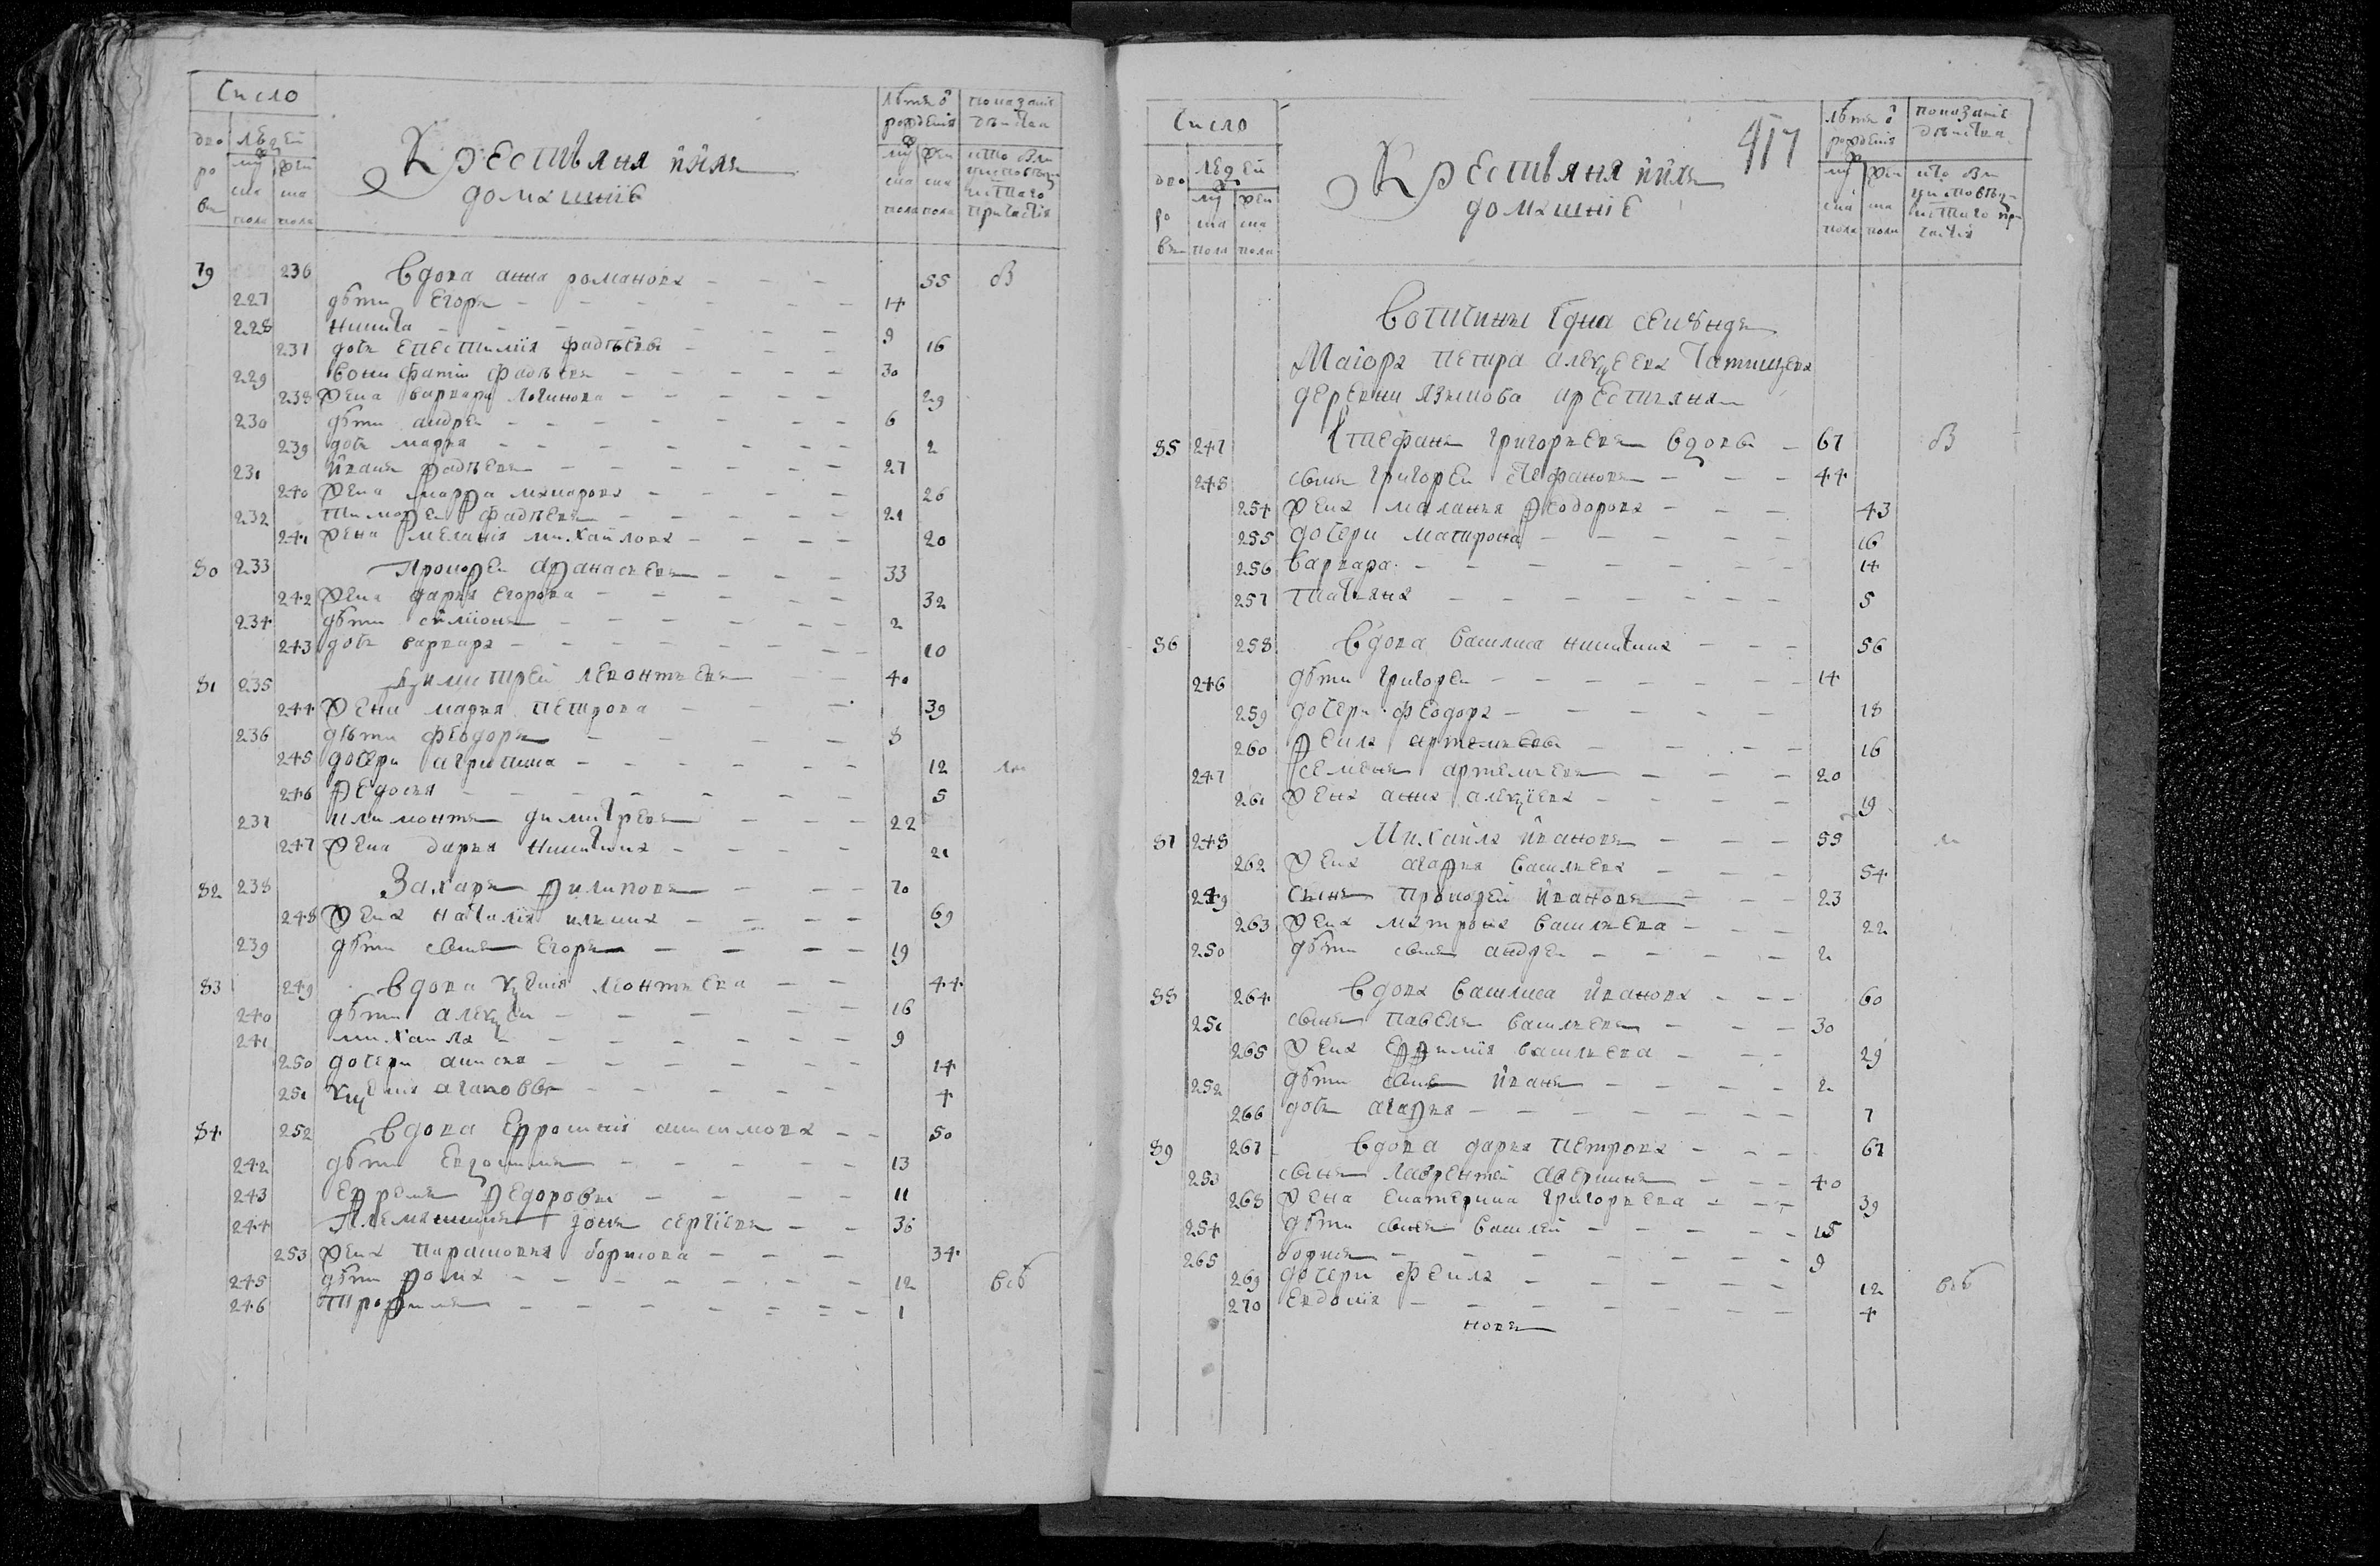 Число
дво ро въ
людей
муска пола
женска пола
Крестьяня и ихъ
домашніе
лѣта ѿ рожденія
муска пола
женска пола
показаніе
кто былъ у исповѣди и с:таго причастія
79 236 вдова анна романова 55 в
227 дѣти егоръ 14
228 никита 9
231 дочь фадѣевы 16
229 вонифатій фадѣевъ 30
238 жена варвара логинова 29
230 дѣти андрей 6
239 дочь марья 2
231 иванъ фадѣевъ 27
240 жена марфа макарова 26
232 тимофей фадѣевъ 21
241 жена меланія михайлова 20
80 233 прокофей афанасьевъ 33
242 жена дарья егорова 32
234 дѣти симіонъ 2
243 дочь варвара 10
81 235 димитрей левонтьевъ 40
244 жена марья петрова 39
236 дѣти феодоръ 8
245 дочери агрипина 12
246 федосья 5
237 филимонтъ димитревъ 22
247 жена дарья никитина 21
82 238 захаръ филиповъ 70
248 жена наталія ильина 69
239 дѣти сынъ егоръ 19
83 249 вдова ксенія леонтьева 44
240 дѣти алексей 16
241 михайла 9
250 дочери анисья 14
251 ксенія агаповы 4
84 252 вдова ефросинія анисимова 50
242 дѣти евдокимъ 13
243 ефремъ федоровы 11
244 племянникъ зонъ сергіевъ 36
253 жена парасковья борисова 34
245 дѣти фома 12
246 трофимъ 1
Число
дво ро въ
людей
муска пола
женска пола
Крестьяня и ихъ
домашніе
417
лѣта ѿ рожденія
показаніе
кто былъ у исповѣди и с:таго причастія
вотчины г:дна секундъ
маіора петра алексеева татищева
деревни языкова крестьяня
85 247 стефанъ григорьевъ вдовъ 67 в
248 сынъ григорей стефановъ 44
254 жена маланья феодорова 43
255 дочери матрона 16
256 варвара 14
257 татьяна 5
86 258 вдова василиса никитина 56
246 дѣти григорей 14
259 дочери феодора 18
260 фекла артемьевы 16
247 семенъ артемьевъ 20
261 жена анна алексіева 19
87 248 михайла ивановъ 55
262 жена агафья васильева 54
249 сынъ прокофей ивановъ 23
263 жена матрона васильева 22
250 дѣти сынъ андрей 2
88 264 вдова василиса иванова 60
251 сынъ павелъ васильевъ 30
265 жена ефимія васильева 29
252 дѣти сынъ иванъ 2
266 дочь агафья 7
89 267 вдова дарья петрова 67
253 сынъ лаврентей аверкинъ 40
268 жена екатерина григорьева 39
254 дѣти сынъ василей 15
265 борисъ 9
269 дочери фекла 12
270 евдокія 4
новъ